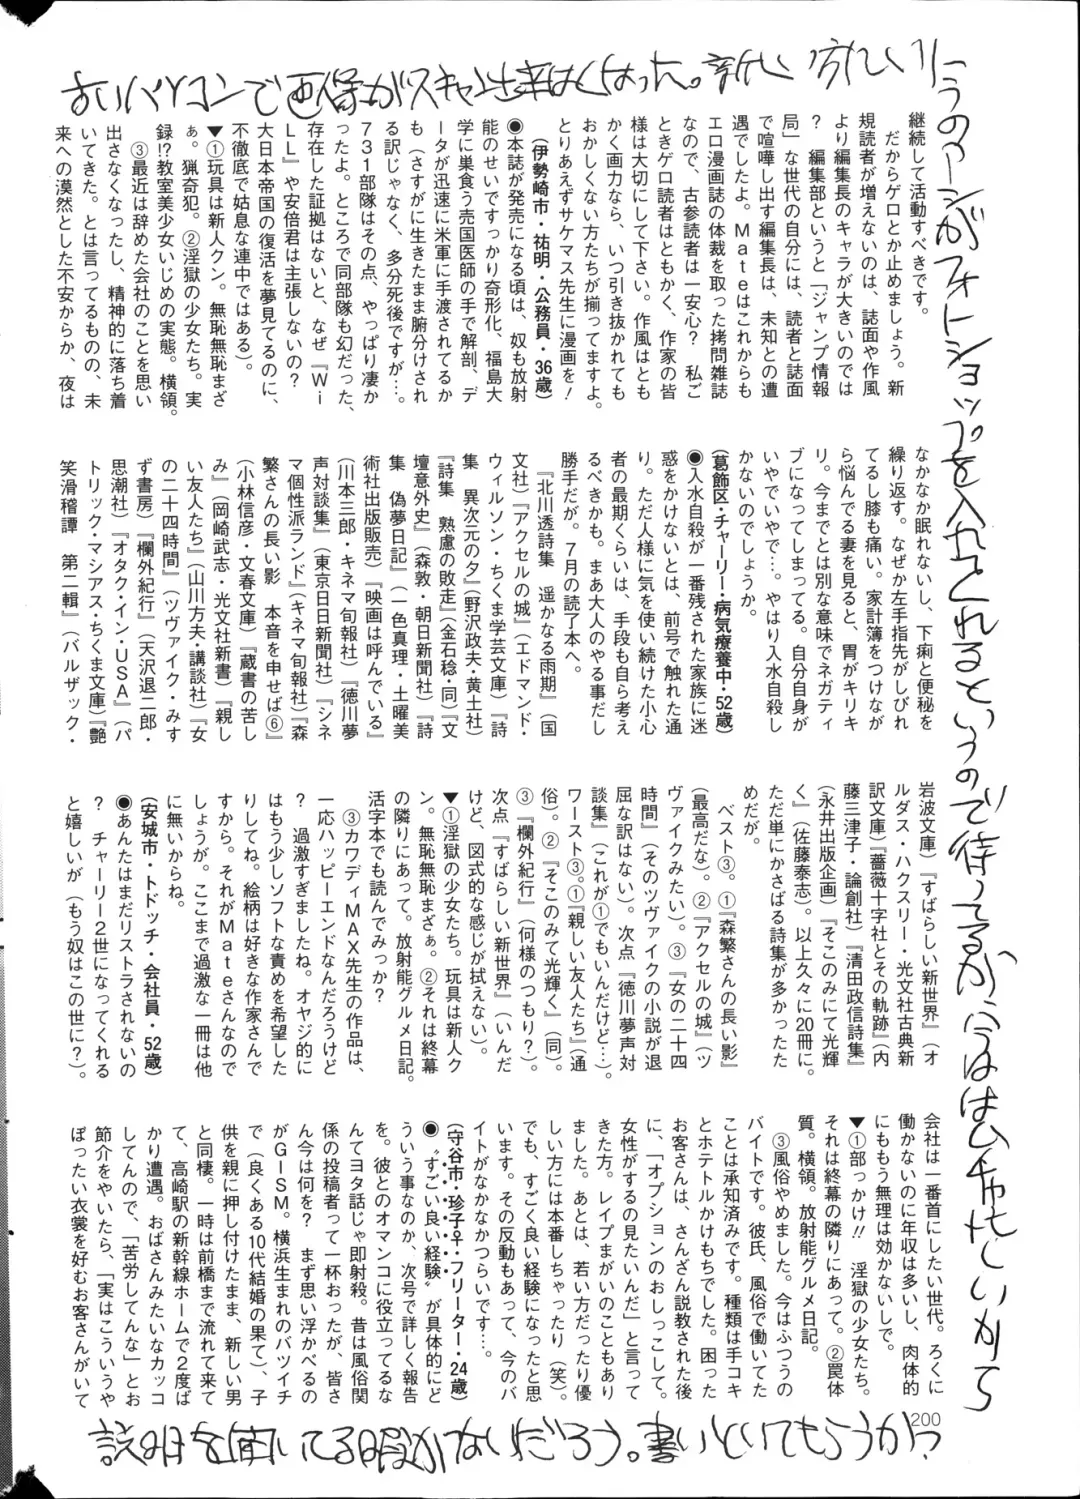 パソコンで画像がスキャン出来なくなった。新しい欲しい
フォトショップを入れてくれるというので待ってるが、今はムチャ忙しいから
継続して活動すべきです。
だからゲロとか止めましょう。新
規読者が増えないのは、誌面や作風
より編集長のキャラが大きいのでは
? 編集部というと「ジャンプ情報
局」な世代の自分には、読者と誌面
で喧嘩し出す編集長は、未知との遭
遇でしたよ。Mateはこれからも
エロ漫画誌の体裁を取った拷問雑誌
なので、古参読者は一安心? 私ご
ときゲロ読者はともかく、作家の皆
様は大切にして下さい。作風はとも
かく画力なら、いつ引き抜かれても
おかしくない方たちが揃ってますよ。
とりあえずサケマス先生に漫画を!
(伊勢崎市・祐明・公務員・36歳)
◉本誌が発売になる頃は、奴も放射
能のせいですっかり奇形化、福島大
学に巣食う売国医師の手で解剖、デ
ータが迅速に米軍に手渡されてるか
も(さすがに生きたまま腑分けされ
る訳じゃなく、多分死後ですが…。
731部隊はその点、やっぱり凄か
ったよ。ところで同部隊も幻だった、
存在した証拠はないと、なぜ『Wi
LL』や安倍君は主張しないの?
大日本帝国の復活を夢見てるのに、
不徹底で姑息な連中ではある)。
▼①玩具は新人クン。無恥無恥まざ
ぁ。猟奇犯。②淫獄の少女たち。実
録!?教室美少女いじめの実態。横領。
③最近は辞めた会社のことを思い
出さなくなったし、精神的に落ち着
いてきた。とは言ってるものの、未
来への漠然とした不安からか、夜は
なかなか眠れないし、下痢と便秘を
繰り返す。なぜか左手指先がしびれ
てるし膝も痛い。家計簿をつけなが
ら悩んでる妻を見ると、胃がキリキ
リ。今までとは別な意味でネガティ
ブになってしまってる。自分自身が
いやでいやで…。やはり入水自殺し
かないのでしょうか。
(葛飾区・チャーリー・病気療養中・52歳)
◉入水自殺が一番残された家族に迷
惑をかけないとは、前号で触れた通
り。ただ人様に気を使い続けた小心
者の最期くらいは、手段も自ら考え
るべきかも。まあ大人のやる事だし
勝手だが。7月の読了本へ。
『北川透詩集 遥かなる雨期』(国
文社)『アクセルの城』(エドマンド・
ウィルソン・ちくま学芸文庫)『詩
集 異次元の夕』(野沢政夫・黄土社)
『詩集 熟慮の敗走』(金石稔・同)『文
壇意外史』(森敦・朝日新聞社)『詩
集 偽夢日記』(一色真理・土曜美
術社出版販売)『映画は呼んでいる』
(川本三郎・キネマ旬報社)『徳川夢
声対談集』(東京日日新聞社)『シネ
マ個性派ランド』(キネマ旬報社)『森
繁さんの長い影 本音を申せば⑥』
(小林信彦・文春文庫)『蔵書の苦し
み』(岡崎武志・光文社新書)『親し
い友人たち』(山川方夫・講談社)『女
の二十四時間』(ツヴァイク・みす
ず書房)『欄外紀行』(天沢退二郎・
思潮社)『オタク・イン・USA』(パ
トリック・マシアス・ちくま文庫)『艶
笑滑稽譚 第二輯』(バルザック・
岩波文庫)『すばらしい新世界』(オ
ルダス・ハクスリー・光文社古典新
訳文庫)『薔薇十字社とその軌跡』(内
藤三津子・論創社)『清田政信詩集』
(永井出版企画)『そこのみにて光輝
く』(佐藤泰志)。以上久々に20冊に。
ただ単にかさばる詩集が多かったた
めだが。
ベスト③。①『森繁さんの長い影』
(最高だな)。②『アクセルの城』(ツ
ヴァイクみたい)。③『女の二十四
時間』(そのツヴァイクの小説が退
屈な訳はない)。次点『徳川夢声対
談集』(これが①でもいんだけど…)。
ワースト③。①『親しい友人たち』(通
俗)。②『そこのみて光輝く』(同)。
③『欄外紀行』(何様のつもり?)。
次点『すばらしい新世界』(いんだ
けど、図式的な感じが拭えない)。
▼①淫獄の少女たち。玩具は新人ク
ン。無恥無恥まざぁ。②それは終幕
の隣りにあって。放射能グルメ日記。
活字本でも読んでみっか?
③カワディMAX先生の作品は、
一応ハッピーエンドなんだろうけど
? 過激すぎましたね。オヤジ的に
はもう少しソフトな責めを希望した
りしてね。絵柄は好きな作家さんで
すから。それがMateさんなので
しょうが。ここまで過激な一冊は他
に無いからね。
(安城市・トドッチ・会社員・52歳)
◉あんたはまだリストラされないの
? チャーリー2世になってくれる
と嬉しいが(もう奴はこの世に?)。
会社は一番首にしたい世代。ろくに
働かないのに年収は多いし、肉体的
にももう無理は効かないしで。
▼①部っかけ!! 淫獄の少女たち。
それは終幕の隣りにあって。②罠体
質。横領。放射能グルメ日記。
③風俗やめました。今はふつうの
バイトです。彼氏、風俗で働いてた
ことは承知済みです。種類は手コキ
とホテトルかけもちでした。困った
お客さんは、さんざん説教された後
に、「オプションのおしっこして。
女性がするの見たいんだ」と言って
きた方。レイプまがいのこともあり
ました。あとは、若い方だったり優
しい方には本番しちゃったり(笑)。
でも、すごく良い経験になったと思
います。その反動もあって、今のバ
イトがなかなかつらいです…。
(守谷市・珍子♀・フリーター・24歳)
◉〝すごい良い経験〟が具体的にど
ういう事なのか、次号で詳しく報告
を。彼とのオマンコに役立ってるな
んてヨタ話じゃ即射殺。昔は風俗関
係の投稿者って一杯おったが、皆さ
ん今は何を? まず思い浮かべるの
がGISM。横浜生まれのバツイチ
で(良くある10代結婚の果て)、子
供を親に押し付けたまま、新しい男
と同棲。一時は前橋まで流れて来て
て、高崎駅の新幹線ホームで2度ば
かり遭遇。おばさんみたいなカッコ
してんので、「苦労してんな」とお
節介をやいたら、「実はこういうや
ぼったい衣裳を好むお客さんがいて
200
説明を聞いてる暇がないだろう。書いといてもらうか?